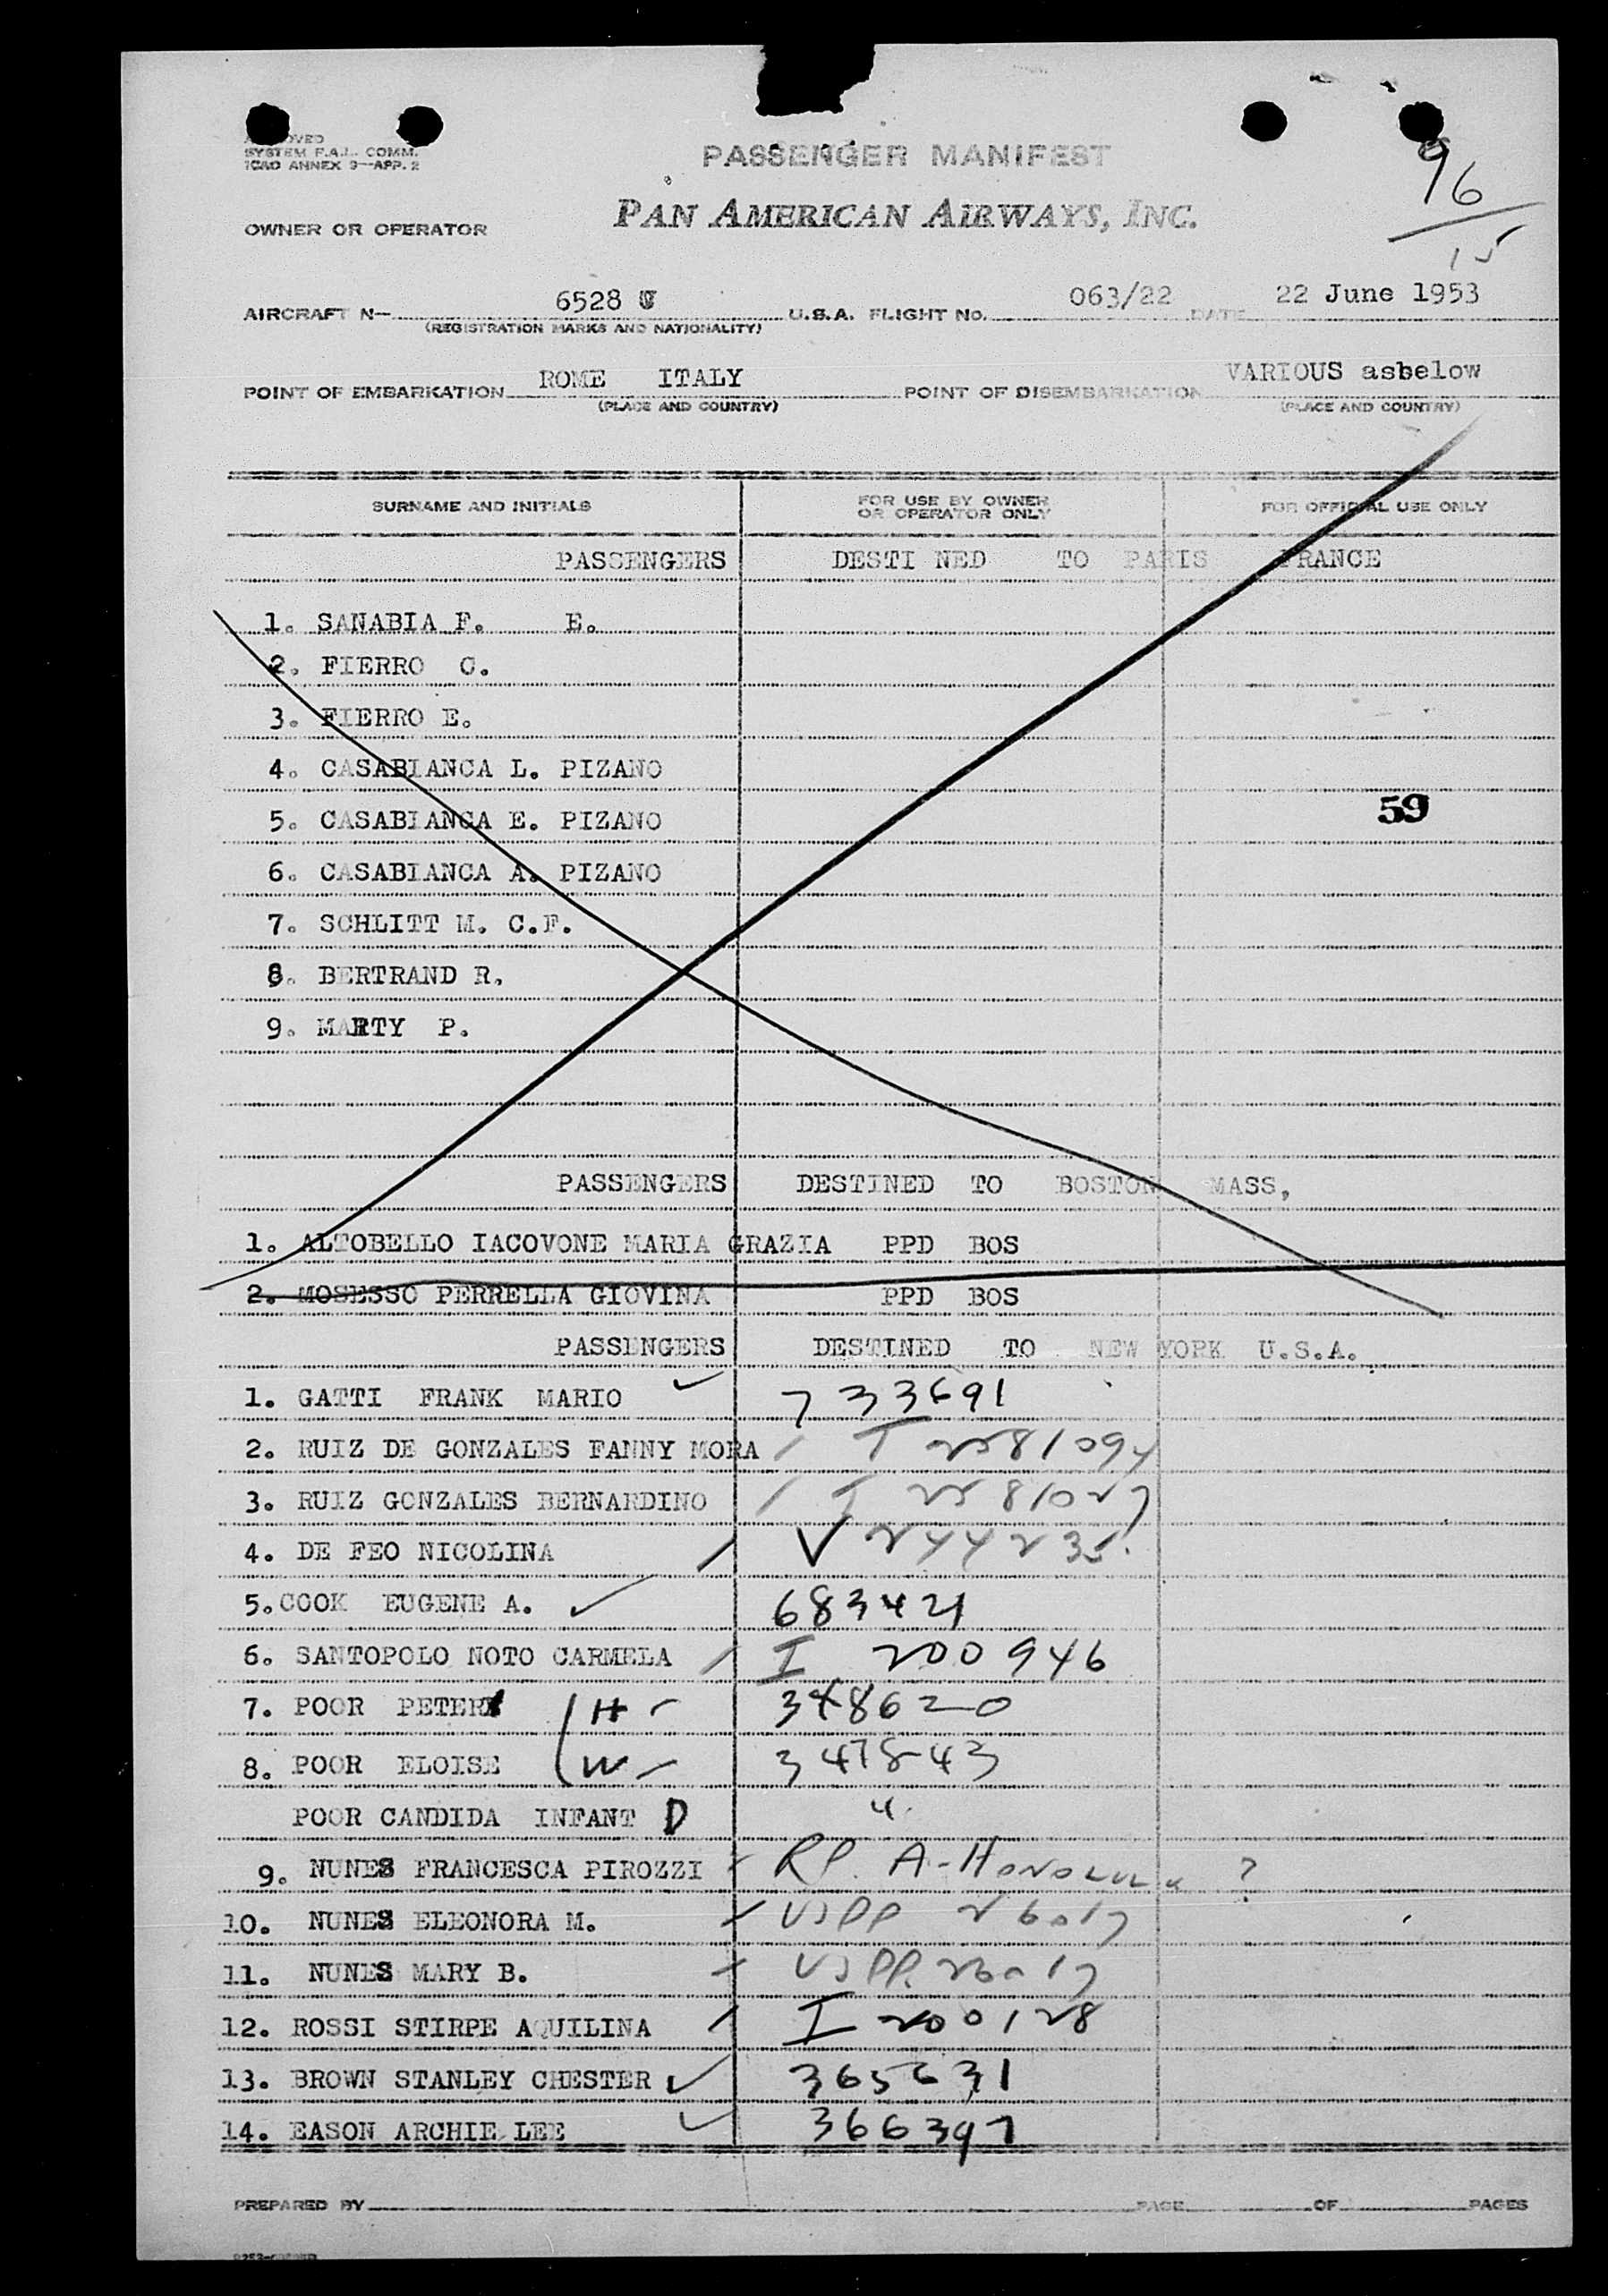 SYSTEM F.A.L. COMM.
ICAO ANNEX 9—APP. 2
PASSENGER MANIFEST
96
15
OWNER OR OPERATOR PAN AMERICAN AIRWAYS, INC.
AIRCRAFT N— 6528 U.S.A. FLIGHT NO. 063/22 DATE 22 June 1953
(REGISTRATION MARKS AND NATIONALITY)
POINT OF EMBARKATION ROME ITALY POINT OF DISEMBARKATION VARIOUS asbelow
(PLACE AND COUNTRY) (PLACE AND COUNTRY)
SURNAME AND INITIALS FOR USE BY OWNER OR OPERATOR ONLY FOR OFFICIAL USE ONLY
PASSENGERS DESTI NED TO PARIS FRANCE
1. SANABIA F. E.
2. FIERRO C.
3. FIERRO E.
4. CASABIANCA L. PIZANO
5. CASABIANCA E. PIZANO 59
6. CASABIANCA A. PIZANO
7. SCHLITT M. C.F.
8. BERTRAND R.
9. MARTY P.
PASSENGERS DESTINED TO BOSTON MASS,
1. ALTOBELLO IACOVONE MARIA GRAZIA PPD BOS
2. MOSESSO PERRELLA GIOVINA PPD BOS
PASSENGERS DESTINED TO NEW YORK U.S.A.
1. GATTI FRANK MARIO ✓ 733691
2. RUIZ DE GONZALES FANNY MORA / I 2581094
3. RUIZ GONZALES BERNARDINO / I 2581027
4. DE FEO NICOLINA / V 244235
5. COOK EUGENE A. ✓ 683421
6. SANTOPOLO NOTO CARMELA / I 200946
7. POOR PETER H 348620
8. POOR ELOISE W 347843
POOR CANDIDA INFANT D "
9. NUNES FRANCESCA PIROZZI RP. A-HONOLULU ?
10. NUNES ELEONORA M. USPP 26017
11. NUNES MARY B. USPP. 26017
12. ROSSI STIRPE AQUILINA / I 200128
13. BROWN STANLEY CHESTER ✓ 365631
14. EASON ARCHIE LEE ✓ 366397
PREPARED BY PAGE OF PAGES